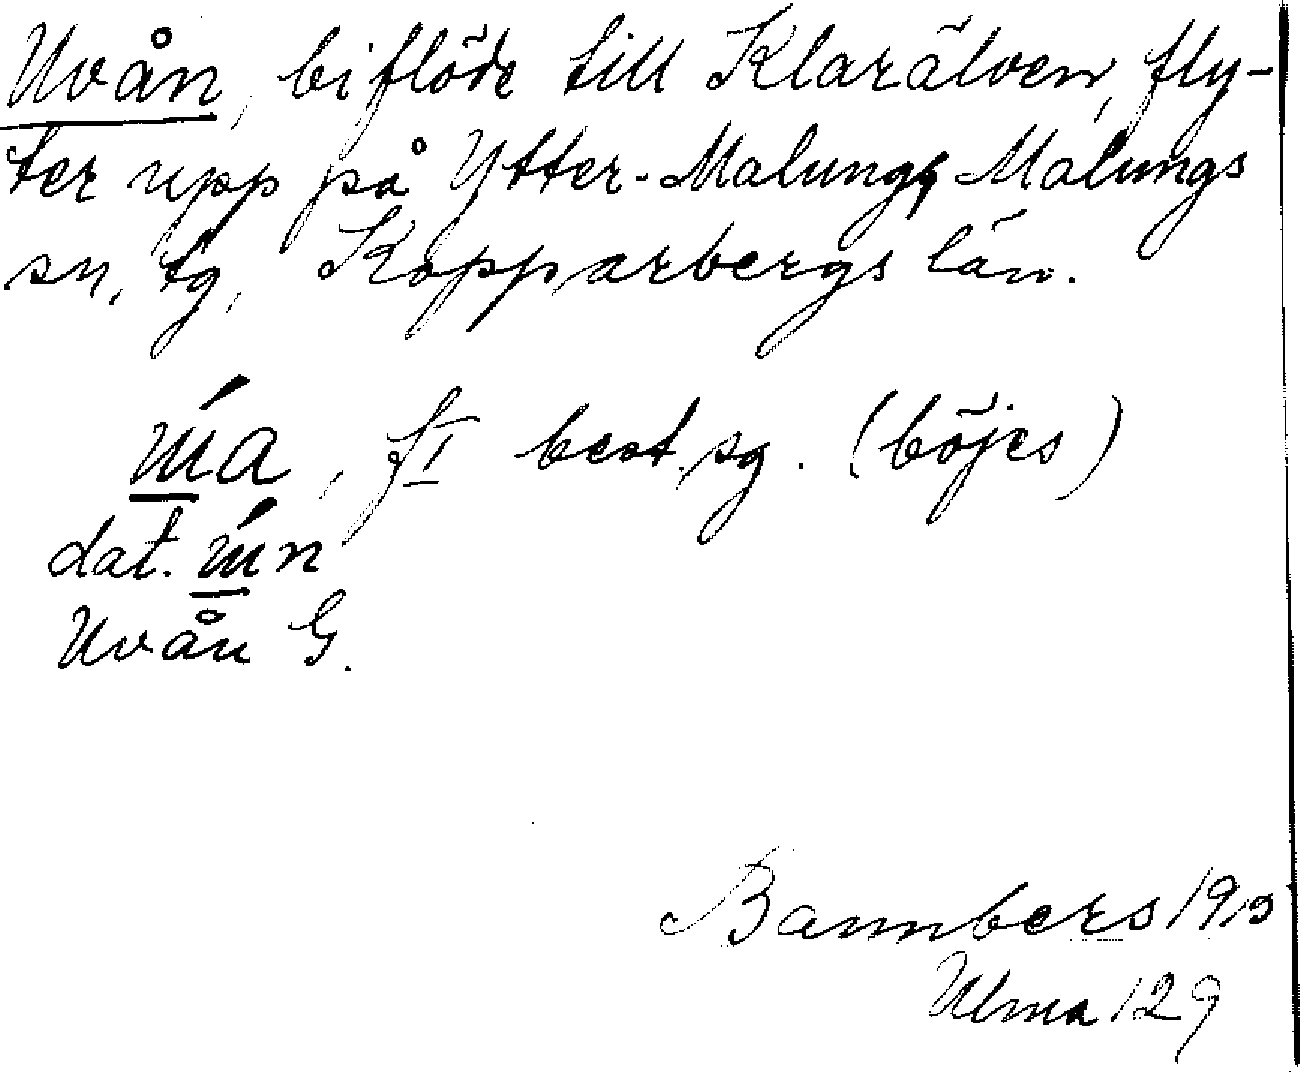 Uvån, biflöde till Klarälven, fly-
ter upp på Ytter-Malungs, Malungs
sn, tg, Kopparbergs län.
fI best. sg. (böjes)
dat.
Uvån G.
Bannbers 1919
Ulma 129